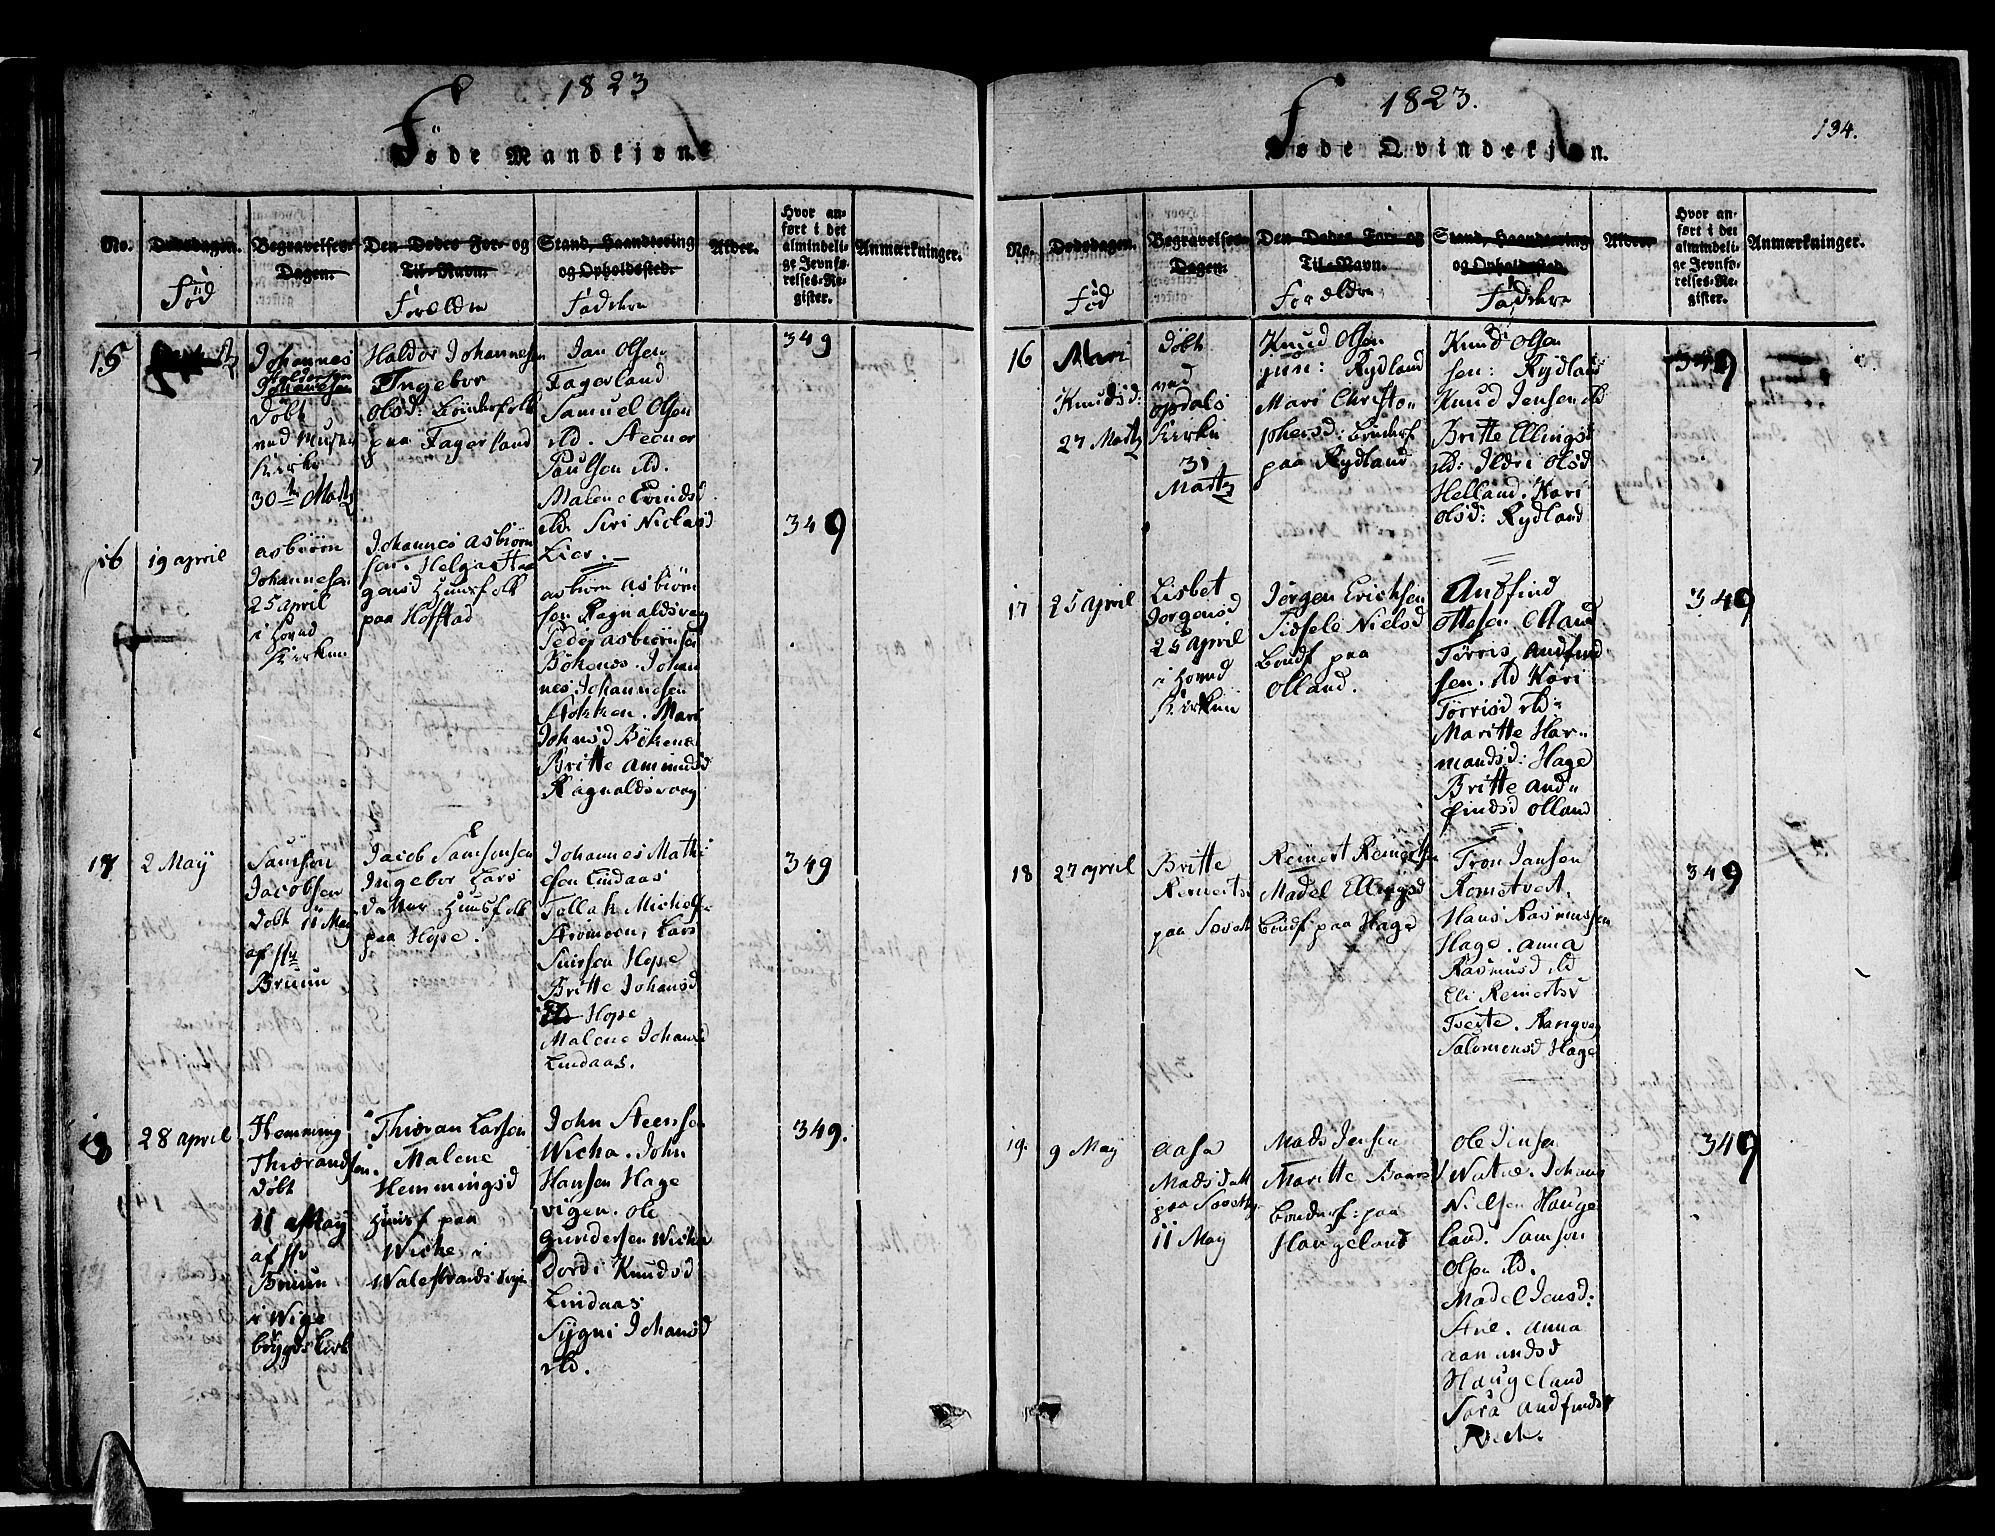 1823
Føde Mandkjøn
No.
Dødsdagen.
Fød
Begravelses-
Dagen.
Den Dødes For- og
Til-Navn.
Forældre
Stand, Haandtering
og Opholdssted.
Faddere
Alder.
Hvor an-
ført i det
almindeli-
ge Jevnfø-
relses-Re-
gister.
Anmærkninger.
15
Johannes
Haldorsen
Johannesen
Døbt
ved
Kirke
30te Martz
Haldor Johannesen
Ingebor
Olsd: Bønderfolk
paa Fagerland
Jan Olsen
Fagerland
Samuel Olsen
ibd. Steener
Paulsen ibd.
Malene Evindsd
ibd: Siri Niclasd
Lier.
349
16
19 april
asbiörn
Johannesen
25 april
i Hoved
Kirken
Johannes asbiörn
sen. Helga Haa
gensd Huusfolk
paa Hofstad
asbiörn asbiörn
sen Ragnaldsvaag
Peder asbiörnsen
Bökenes. Johan
nes Johannesen
Stokken. Mari
Johnsd Bökenes
Britte amundsd
Ragnaldsvaag
349
17
2 May
Samson
Jacobsen
Döbt 11 May
af Hr
Bruun
Jacob Samsonsen
Ingebor Lars
datter Huusfolk
paa Hope.
Johannes Mathi
esen Lindaas
Tallak Michels
Lars
Hope
Britte Johansd
Hope
Malene Johansd
Lindaas.
349
18
28 april
Hemming
Thiærandsen.
döbt
11 May
af Hr
Bruun
i Wige
bøygds Kirk
Thiæran Larsen
Malene
Hemmingsd
Huusf paa
Wicke i
John Steensen
Wicha. John
Hansen Hage
vigen. Ole
Gundersen Wicha
Dordi Knudsd
Lindaas
Sygni Johansd
ibd.
349.
1823.
134.
Føde Qvindekjøn.
No.
Dødsdagen.
Fød
Begravelses-
Dagen.
Den Dødes For- og
Til-Navn.
Forældre
Stand, Haandtering
og Opholdssted.
Faddere
Alder
Hvor an-
ført i det
almindeli-
ge Jevnfø-
relses-Re-
gister.
Anmærkninger.
16
Mari
Knudsd:
27 Martz
Döbt
ved
Opdals
Kirke
31
Martz
Knud Olsen
jun: Rydland
Mari Christo-
phersd: Bönderf
paa Rydland
Knud Olsen
sen: Rydland
Knud Jensen ibd
Britte Ellingsd
ibd: Ildri Olsd
Helland. Kari
Olsd: Rydland
349
17
25 April
Lisbet
Jorgensd
25 April
i Hoved
Kirken
Jørgen Erichsen
Sidsele Nielsd
Bøndf paa
Olland.
Andfind
Ottesen Olland
Tørris Andfind
sen. ibd Kari
Tørrisd ibd
Maritte Har-
mandsd: Hage
Britte And-
findsd Olland
349
18
27 april
Britte
Reinertsd
paa
Reinert Reinertsen
Madel Ellingsd
böndf paa Hage
Tron Jansen
Rometvedt.
Hans Rasmussen
Hage. anna
Rasmusd ibd
Eli Reinertsd
Tveite. Rangvei
Salomonsd Hage
349
19.
9 May
Aasa
Madsdatt
paa
11 May
Mads Jensen
Maritte Baars
bønderf: paa
Haugeland
Ole Jensen
Johans
Nielsen Hauge
land. Samson
Olsen ibd.
Madel Jensd:
anna
aamundsd
Haugeland
Sara Andfindsd
349